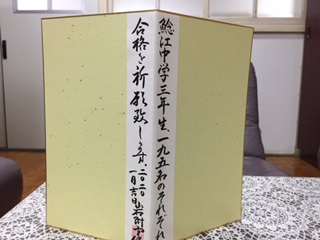 鯰江中学三年生、一九五名のそれぞれ
合格を祈願致します。二〇二〇
一月吉日